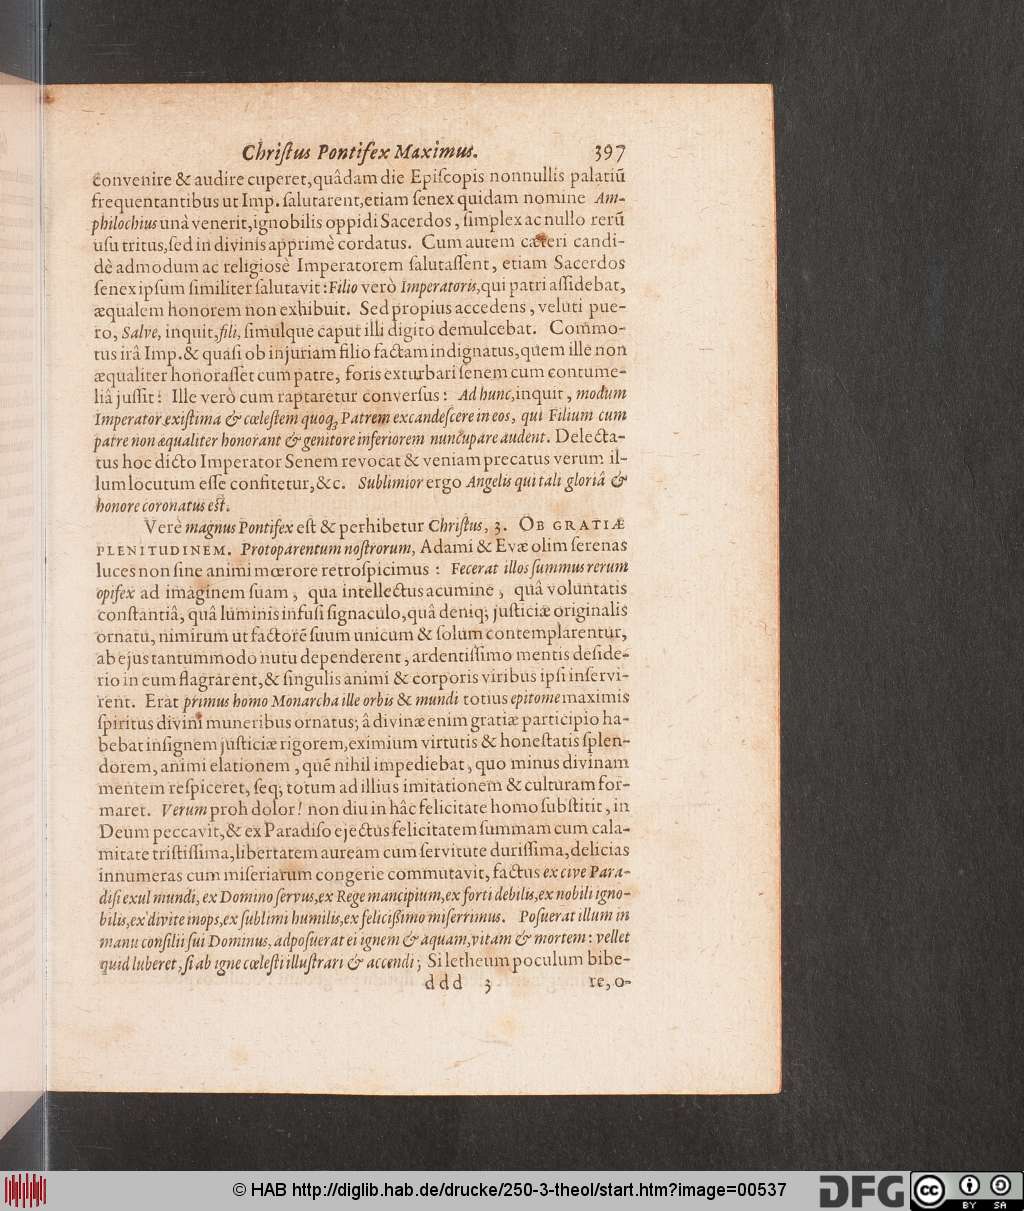 Chriſtus Pontifex Maximus. 397
convenire & audire cuperet, quâdam die Epiſcopis nonnullis palatiũ
frequentantibus ut Imp. ſalutarent, etiam ſenex quidam nomine Am-
philochius unà venerit, ignobilis oppidi Sacerdos, ſimplex ac nullo rerũ
uſu tritus, ſed in divinis apprimè cordatus. Cum autem cæteri candi-
dè admodum ac religiosè Imperatorem ſalutaſſent, etiam Sacerdos
ſenex ipſum ſimiliter ſalutavit: Filio verò Imperatoris, qui patri aſſidebat,
æqualem honorem non exhibuit. Sed propius accedens, veluti pue-
ro, Salve, inquit, fili, ſimulque caput illi digito demulcebat. Commo-
tus irâ Imp. & quaſi ob injuriam filio factam indignatus, quem ille non
æqualiter honoraſſet cum patre, foris exturbari ſenem cum contume-
liâ juſſit: Ille verò cum raptaretur converſus: Ad hunc, inquit, modum
Imperator exiſtima & cœleſtem quoq; Patrem excandeſcere in eos, qui Filium cum
patre non æqualiter honorant & genitore inferiorem nuncupare audent. Delecta-
tus hoc dicto Imperator Senem revocat & veniam precatus verum il-
lum locutum eſſe confitetur, &c. Sublimior ergo Angelis qui tali gloriâ &
honore coronatus eſt.
Verè magnus Pontifex eſt & perhibetur Chriſtus, 3. OB GRATIÆ
PLENITUDINEM. Protoparentum noſtrorum, Adami & Evæ olim ſerenas
luces non ſine animi mœrore retroſpicimus: Fecerat illos ſummus rerum
opifex ad imaginem ſuam, qua intellectus acumine, quâ voluntatis
conſtantiâ, quâ luminis infuſi ſignaculo, quâ deniq; juſticiæ originalis
ornatu, nimirum ut factorẽ ſuum unicum & ſolum contemplarentur,
ab ejus tantummodo nutu dependerent, ardentiſſimo mentis deſide-
rio in eum flagrarent, & ſingulis animi & corporis viribus ipſi inſervi-
rent. Erat primus homo Monarcha ille orbis & mundi totius epitome maximis
ſpiritus divini muneribus ornatus; â divinæ enim gratiæ participio ha-
bebat inſignem juſticiæ rigorem, eximium virtutis & honeſtatis ſplen-
dorem, animi elationem, quẽ nihil impediebat, quo minus divinam
mentem reſpiceret, ſeq; totum ad illius imitationem & culturam for-
maret. Verum proh dolor! non diu in hâc felicitate homo ſubſtitit, in
Deum peccavit, & ex Paradiſo ejectus felicitatem ſummam cum cala-
mitate triſtiſſima, libertatem auream cum ſervitute duriſſima, delicias
innumeras cum miſeriarum congerie commutavit, factus ex cive Para-
diſi exul mundi, ex Domino ſervus, ex Rege mancipium, ex forti debilis, ex nobili igno-
bilis, ex divite inops, ex ſublimi humilis, ex feliciſſimo miſerrimus. Poſuerat illum in
manu conſilii ſui Dominus, adpoſuerat ei ignem & aquam, vitam & mortem: vellet
quid luberet, ſi ab igne cœleſti illuſtrari & accendi; Si letheum poculum bibe-
ddd 3 re, o-
© HAB http://diglib.hab.de/drucke/250-3-theol/start.htm?image=00537
DFG
cc BY SA